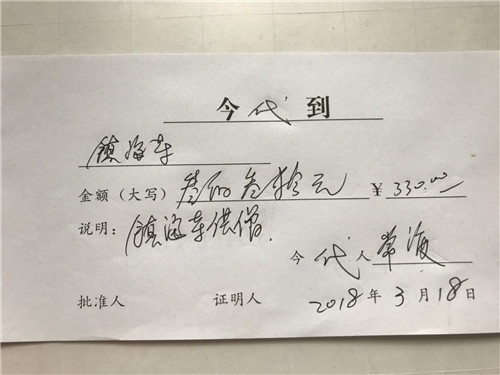 今代到
镇海寺
金额（大写）叁佰叁拾元 ￥330.00
说明：镇海寺供僧.
今代人常海
批准人 证明人 2018年3月18日